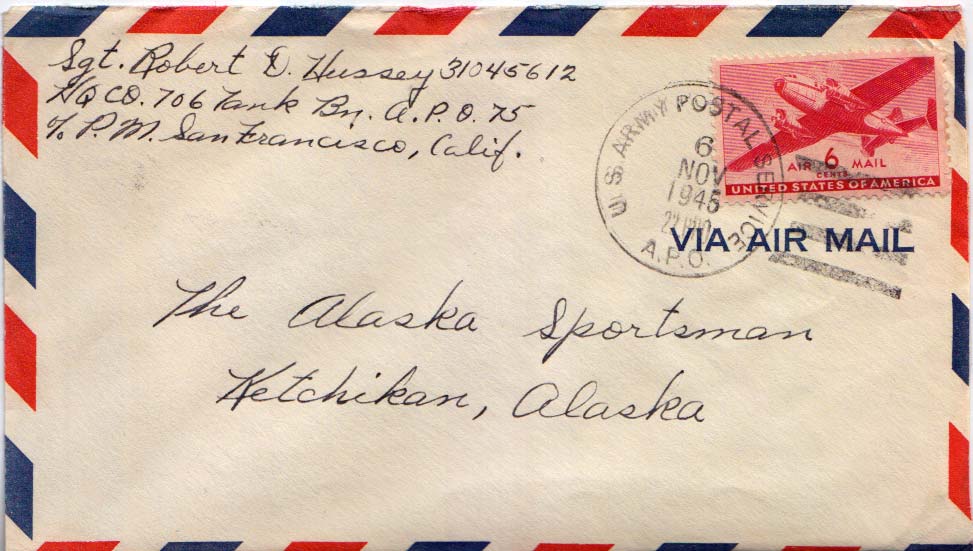 Sgt. Robert D. Hussey 31045612
HQ CO. 706 Tank Bn. A.P.O. 75
℅ P.M. San Francisco, Calif.
U.S. ARMY POSTAL SERVICE
6
NOV
1945
A.P.O.
AIR 6 MAIL
CENTS
UNITED STATES OF AMERICA
VIA AIR MAIL
The Alaska Sportsman
Ketchikan, Alaska